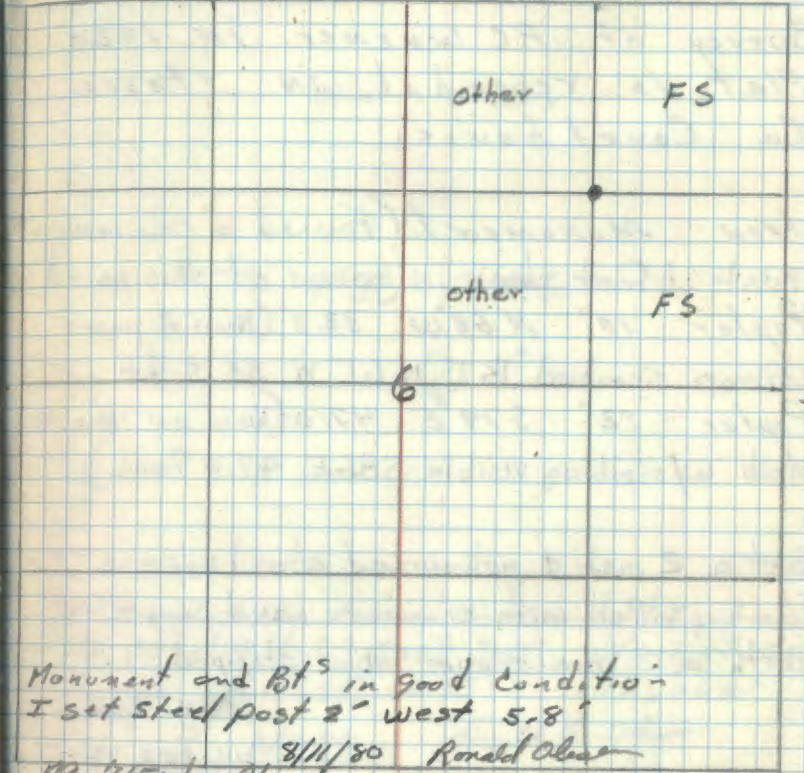 other FS
other FS
6
Monument and Bts in good Condition
I set steel post 2' west 5.8'
8/11/80 Ronald